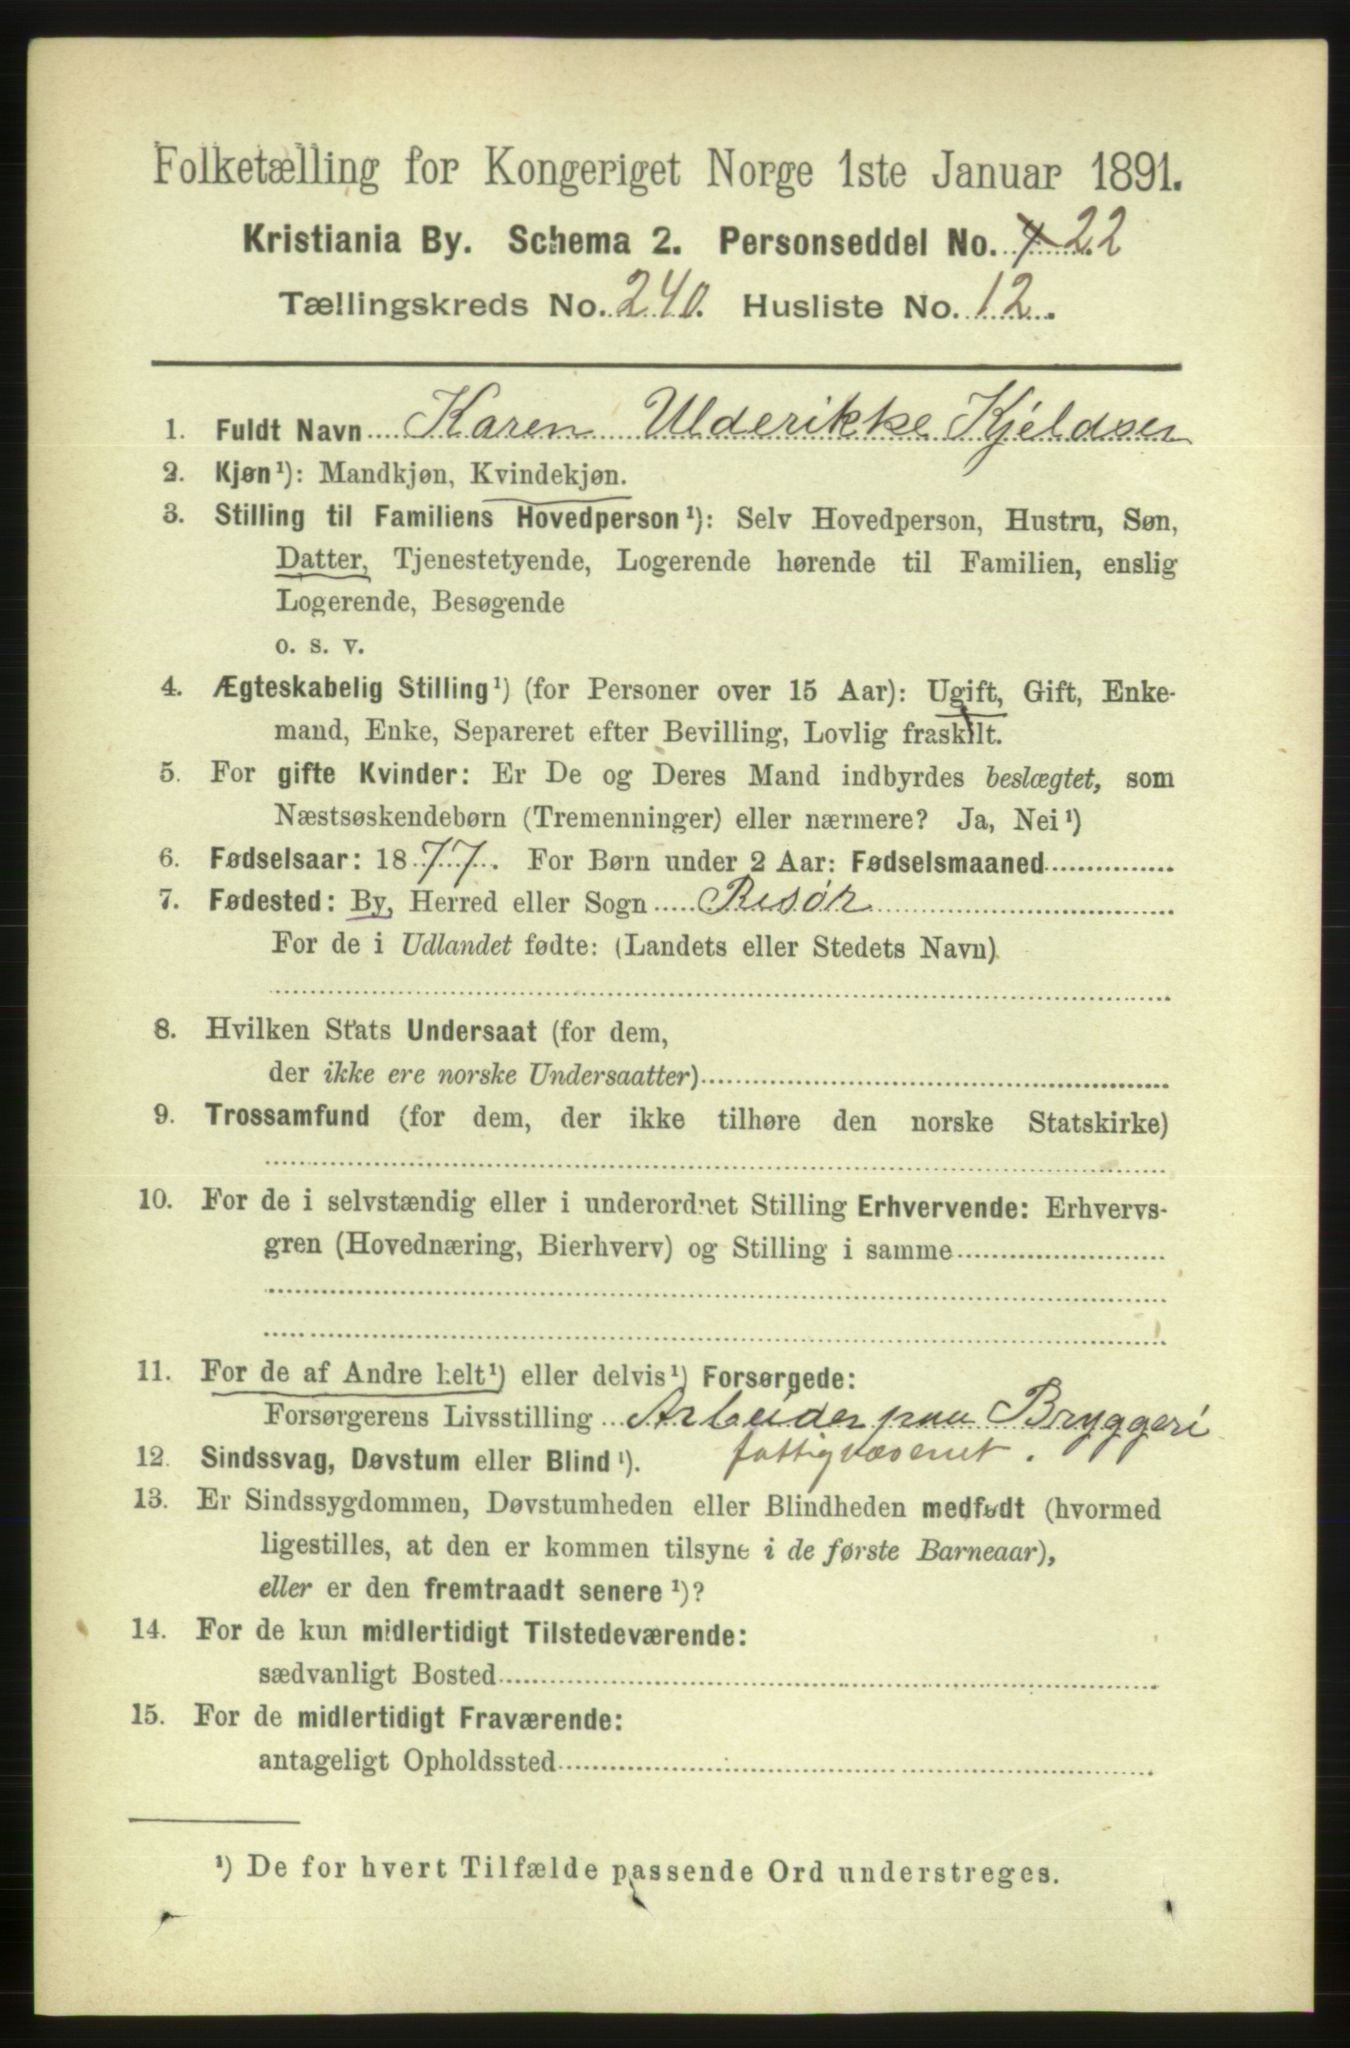 Folketælling for Kongeriget Norge 1ste Januar 1891.
Kristiania By. Schema 2. Personseddel No. 22
Tællingskreds No. 240. Husliste No. 12.
1. Fuldt Navn Karen Ulderikke Kjeldsen
2. Kjøn¹): Mandkjøn, Kvindekjøn.
3. Stilling til Familiens Hovedperson¹): Selv Hovedperson, Hustru, Søn,
Datter, Tjenestetyende, Logerende hørende til Familien, enslig
Logerende, Besøgende
o. s. v.
4. Ægteskabelig Stilling¹) (for Personer over 15 Aar): Ugift, Gift, Enke-
mand, Enke, Separeret efter Bevilling, Lovlig fraskilt.
5. For gifte Kvinder: Er De og Deres Mand indbyrdes beslægtet, som
Næstsøskendebørn (Tremenninger) eller nærmere? Ja, Nei¹)
6. Fødselsaar: 1877. For Børn under 2 Aar: Fødselsmaaned
7. Fødested: By, Herred eller Sogn Risør
For de i Udlandet fødte: (Landets eller Stedets Navn)
8. Hvilken Stats Undersaat (for dem,
der ikke ere norske Undersaatter)
9. Trossamfund (for dem, der ikke tilhøre den norske Statskirke)
10. For de i selvstændig eller i underordnet Stilling Erhvervende: Erhvervs-
gren (Hovednæring, Bierhverv) og Stilling i samme
11. For de af Andre helt¹) eller delvis¹) Forsørgede:
Forsørgerens Livsstilling Arbeider paa Bryggeri
fattigvæsenet.
12. Sindssvag, Døvstum eller Blind¹).
13. Er Sindssygdommen, Døvstumheden eller Blindheden medfødt (hvormed
ligestilles, at den er kommen tilsyne i de første Barneaar),
eller er den fremtraadt senere¹)?
14. For de kun midlertidigt Tilstedeværende:
sædvanligt Bosted
15. For de midlertidigt Fraværende:
antageligt Opholdssted
¹) De for hvert Tilfælde passende Ord understreges.